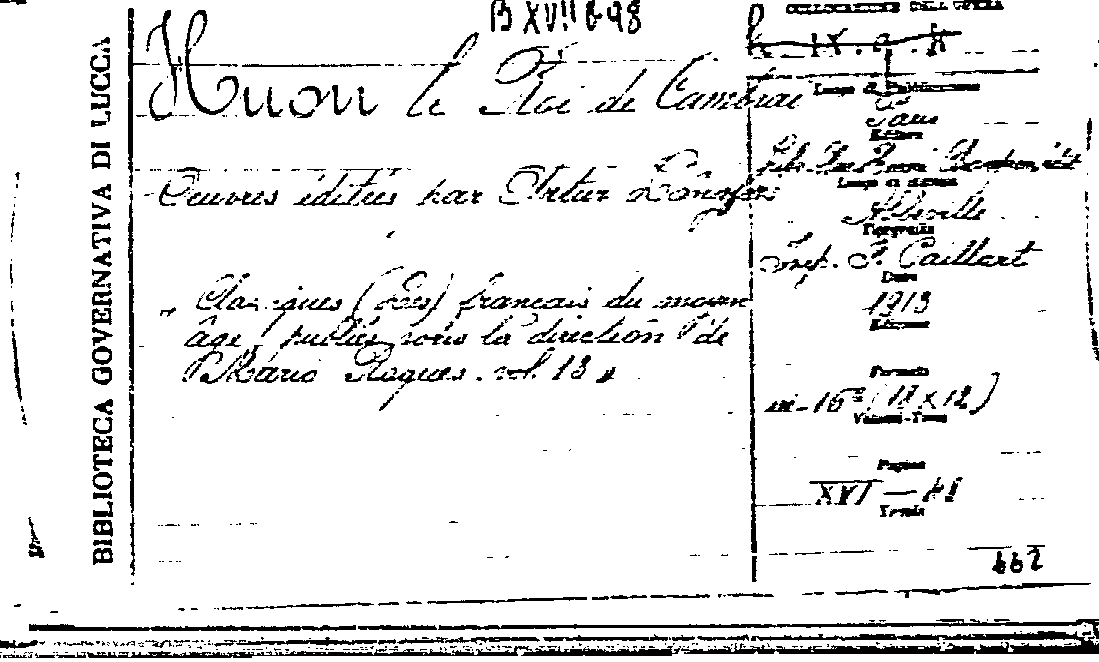 BIBLIOTECA GOVERNATIVA DI LUCCA
B XVII 698
COLLOCAZIONE DELL'OPERA
IX
Huon le Roi de Cambrai
Oeuvres éditées par Artur
„ Classiques (Les) français du moyen
âge, publiés sous la direction de
Mario Roques. vol. 13 „
Luogo di Pubblicazione
Paris
Editore
Lib. Champion édit
Luogo di stampa
Abbeville
Tipografia
Imp. F. Paillart
Data
1913
Edizione
Formato
in-16º (18 x 12)
Volumi-Tomi
Pagine
XVI —
662